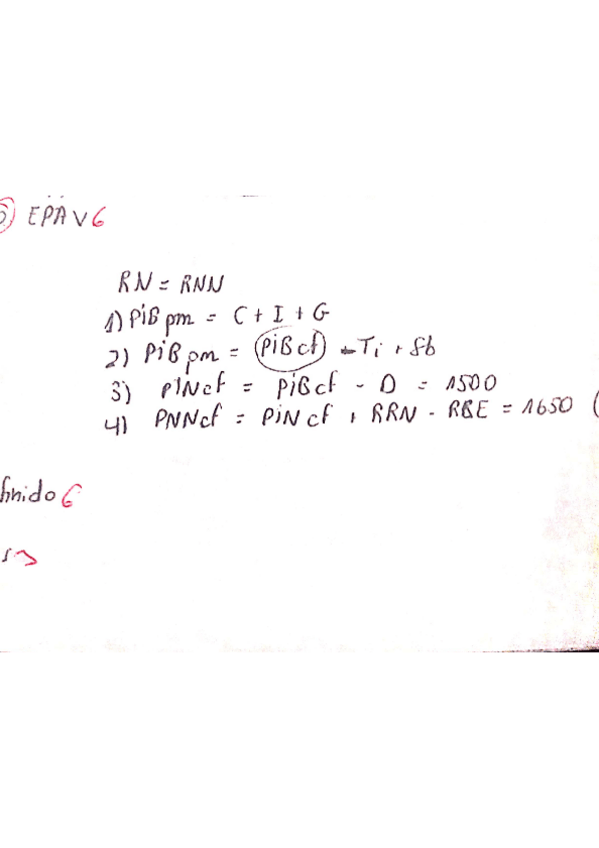 EPA V 6
RN = RNN
1) PiB pm = C + I + G
2) PiB pm = PiB cf - Ti + Sb
3) PiN cf = PiB cf - D = 1500
4) PNN cf = PiN cf + RRN - RBE = 1650 (
finido 6